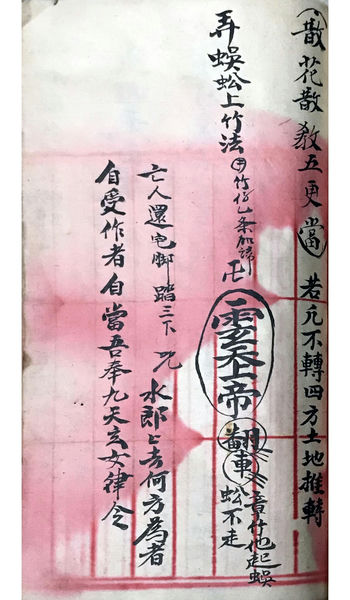 散花散教五更當若不轉四方土地推轉
弄蜈蚣上竹法用竹仔乙条加諱卍上帝車竹他起蜈
蚣不走
亡人還宅脚踏三下咒水郎上去何方為者
自受作者自當吾奉九天玄女律令